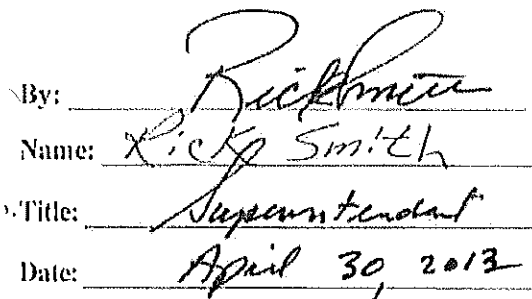 By: Rick Smith
Name: Rick Smith
Title: Superintendant
Date: April 30, 2013